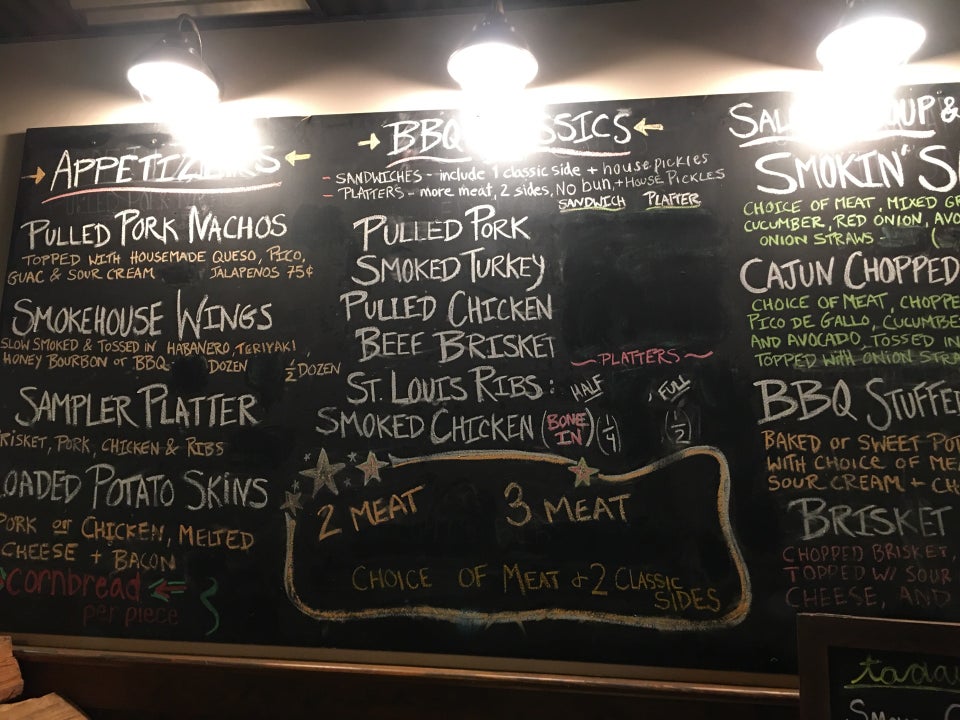 APPETIZERS
PULLED PORK NACHOS
TOPPED WITH HOUSEMADE QUESO, PICO,
GUAC & SOUR CREAM JALAPENOS 75¢
SMOKEHOUSE WINGS
SLOW SMOKED & TOSSED IN HABANERO, TERIYAKI,
HONEY BOURBON or BBQ DOZEN 1/2 DOZEN
SAMPLER PLATTER
BRISKET, PORK, CHICKEN & RIBS
LOADED POTATO SKINS
PORK or CHICKEN, MELTED
CHEESE + BACON
cornbread
per piece
BBQ CLASSICS
- SANDWICHES - include 1 classic side + house pickles
- PLATTERS - more meat, 2 sides, NO bun, + HOUSE PICKLES
SANDWICH PLATTER
PULLED PORK
SMOKED TURKEY
PULLED CHICKEN
BEEF BRISKET
~PLATTERS~
ST. LOUIS RIBS: HALF FULL
SMOKED CHICKEN (BONE IN) (1/4) (1/2)
2 MEAT 3 MEAT
CHOICE OF MEAT & 2 CLASSIC
SIDES
SMOKIN'
CHOICE OF MEAT, MIXED
CUCUMBER, RED ONION,
ONION STRAWS -
CAJUN CHOPPED
CHOICE OF MEAT,
PICO DE GALLO,
AND AVOCADO, TOSSED IN
TOPPED WITH ONION
BBQ STUFFED
BAKED or SWEET
WITH CHOICE OF
SOUR CREAM +
BRISKET
CHOPPED BRISKET,
TOPPED W/ SOUR
CHEESE, AND